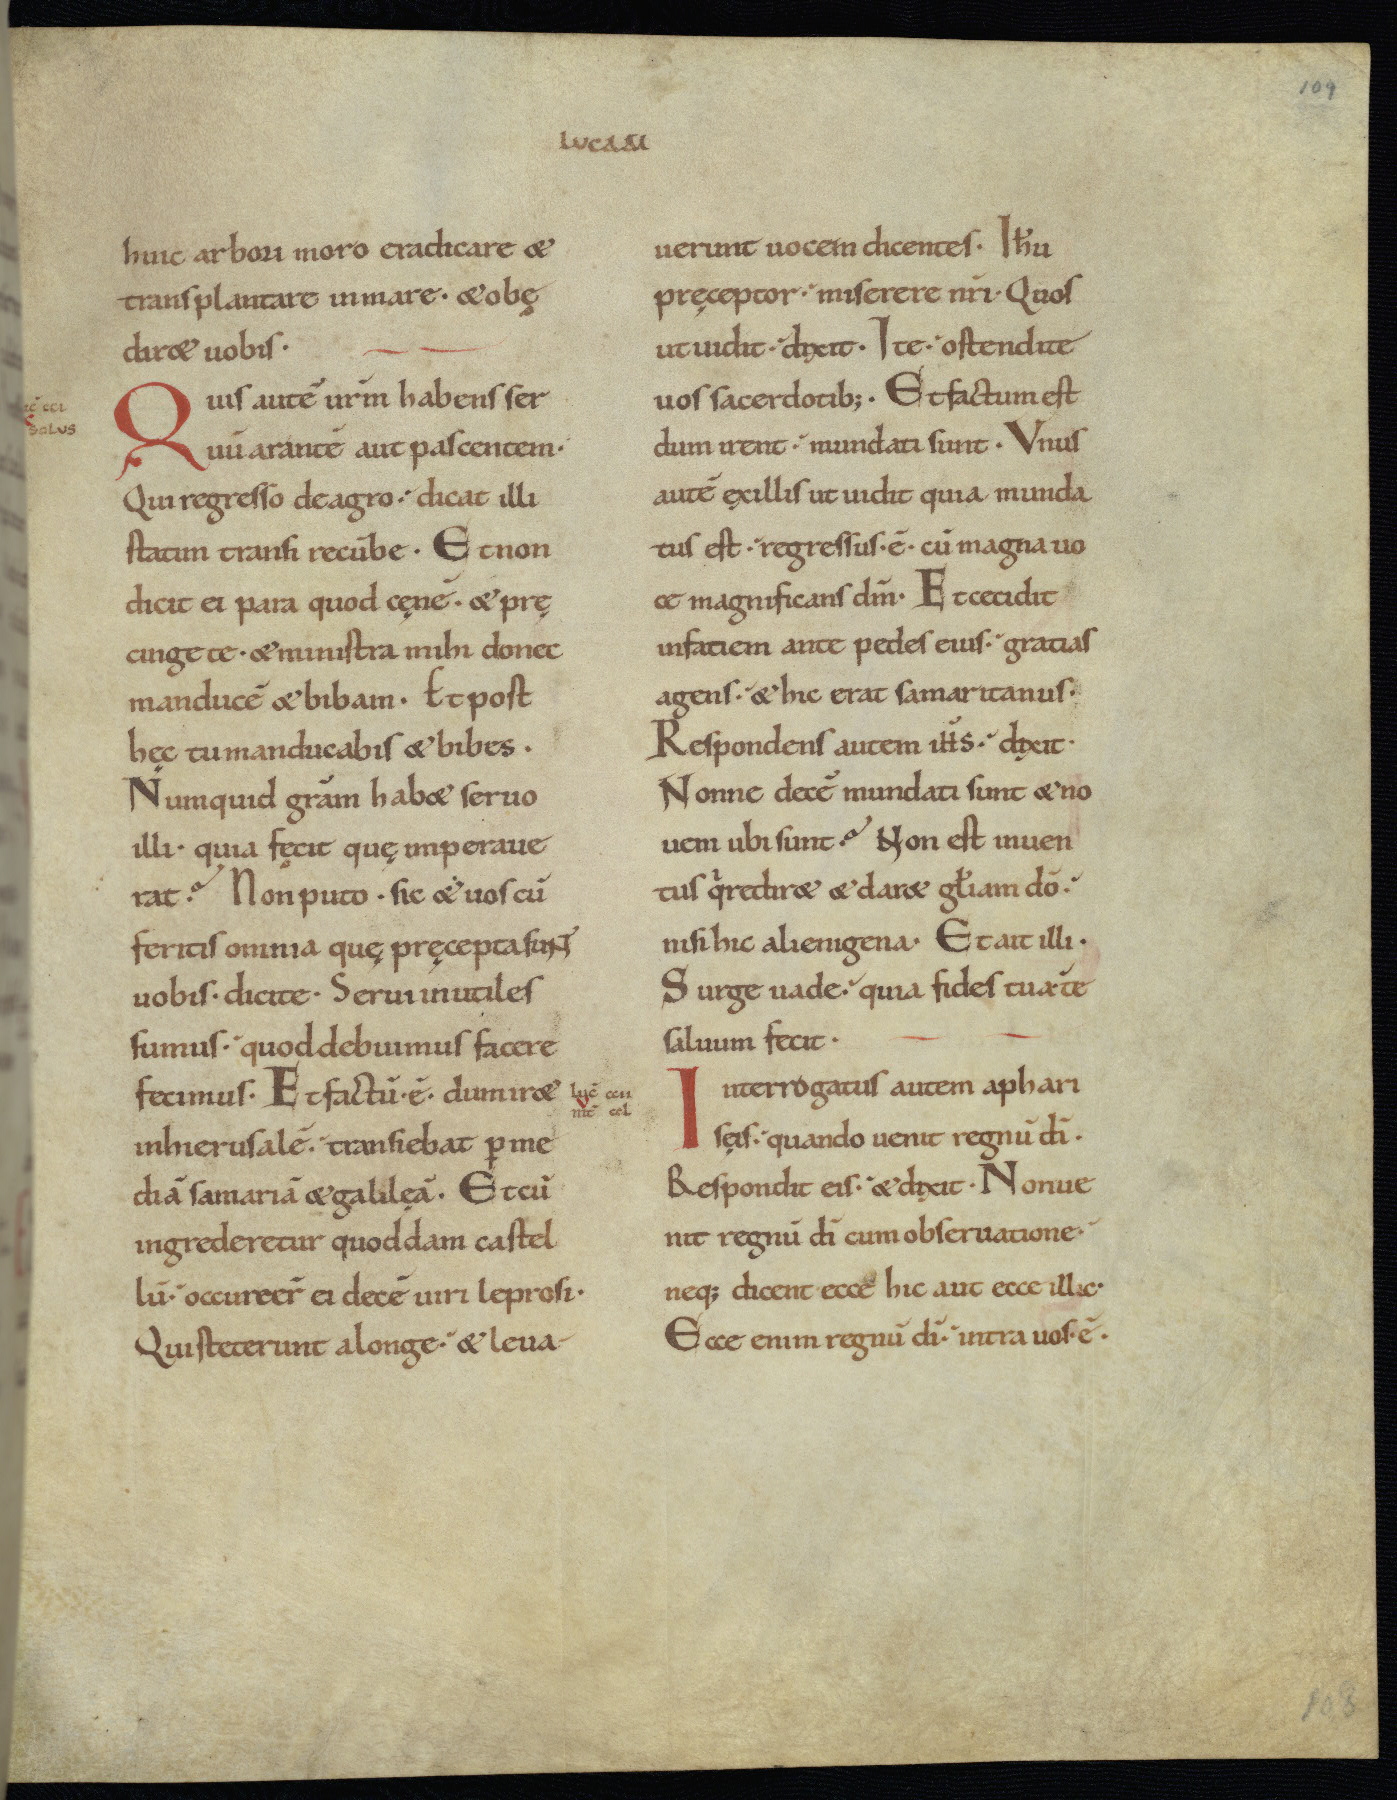 109
lucam
huic arbori moro eradicare &
transplantare inmare· &obę
dir& uobis·
Quis autē urm̄ habens ser
uū arantē aut pascentem·
Qui regresso deagro· dicat illi
statim transi recūbe· Et non
dicit ei para quod cęnē· & prę
cinge te· &ministra mihi donec
manducē &bibam· Et post
hęc tu manducabis &bibes·
Numquid grām hab& seruo
illi· quia fęcit quę imperaue
rat? Non puto· sic & uos cū
feritis omnia quę pręcepta sunt
uobis· dicite· Serui inutiles
sumus· quod debuimus facere
fecimus· Et factū·ē· dum ir&
inhierusalē· transiebat p̄ me
diā samariā &galilęā· Et cū
ingrederetur quoddam castel
lū· occurer̄ ei decē uiri leprosi·
Qui steterunt alonge· & leua
SALVS
luc̄
uerunt uocem dicentes· Ihū
pręceptor· miserere nr̄i· Quos
ut uidit· dixit· Ite· ostendite
uos sacerdotib;· Et factum est
dum irent· mundati sunt· Vnus
autē ęxillis ut uidit quia munda
tus est· regressus·ē· cū magna uo
ce magnificans dm̄· Et cecidit
infatiem ante pedes eius· gratias
agens· &hic erat samaritanus·
Respondens autem ih̄s· dixit·
Nonne decē mundati sunt &no
uem ubi sunt? Non est inuen
tus q̇redir& &dar& gl̄iam dō·
nisi hic alienigena· Et ait illi·
Surge uade· quia fides tua tē
saluum fecit·
Interrogatus autem aphari
sęis· quando uenit regnū dī·
Respondit eis· &dixit· Nonue
nit regnū dī cum obseruatione·
neq; dicent ecce hic aut ecce illic·
Ecce enim regnū dī· intra uos·ē·
108